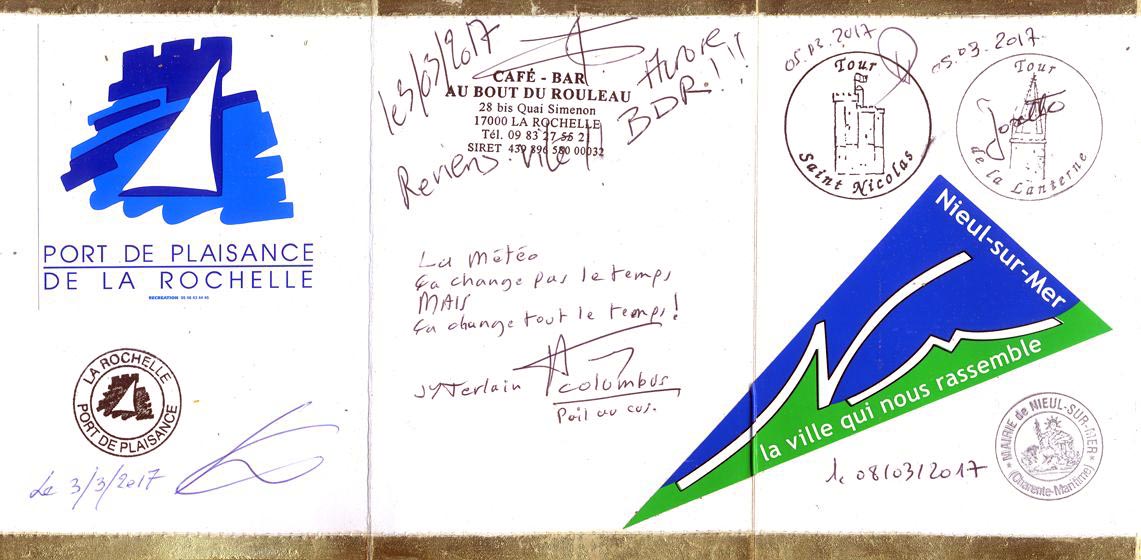 PORT DE PLAISANCE
DE LA ROCHELLE
RECREATION 05 46 43 44 40
LA ROCHELLE
PORT DE PLAISANCE
Le 3/3/2017
le 5/03/2017
CAFÉ - BAR
AU BOUT DU ROULEAU
28 bis Quai Simenon
17000 LA ROCHELLE
Tél. 09 83 27 56 2
SIRET 439 896 580 00032
Aurore
BDR!!!
Reviens vite!
La Météo
ça change pas le temps
MAIS
ça change tout le temps!
JYTerlain
columbus
Poil au cus.
05.03.2017
Tour
Saint Nicolas
05.03.2017
Tour
de la Lanterne
Nieul-sur-Mer
la ville qui nous rassemble
MAIRIE de NIEUL-SUR-MER
(Charente-Maritime)
le 08/03/2017